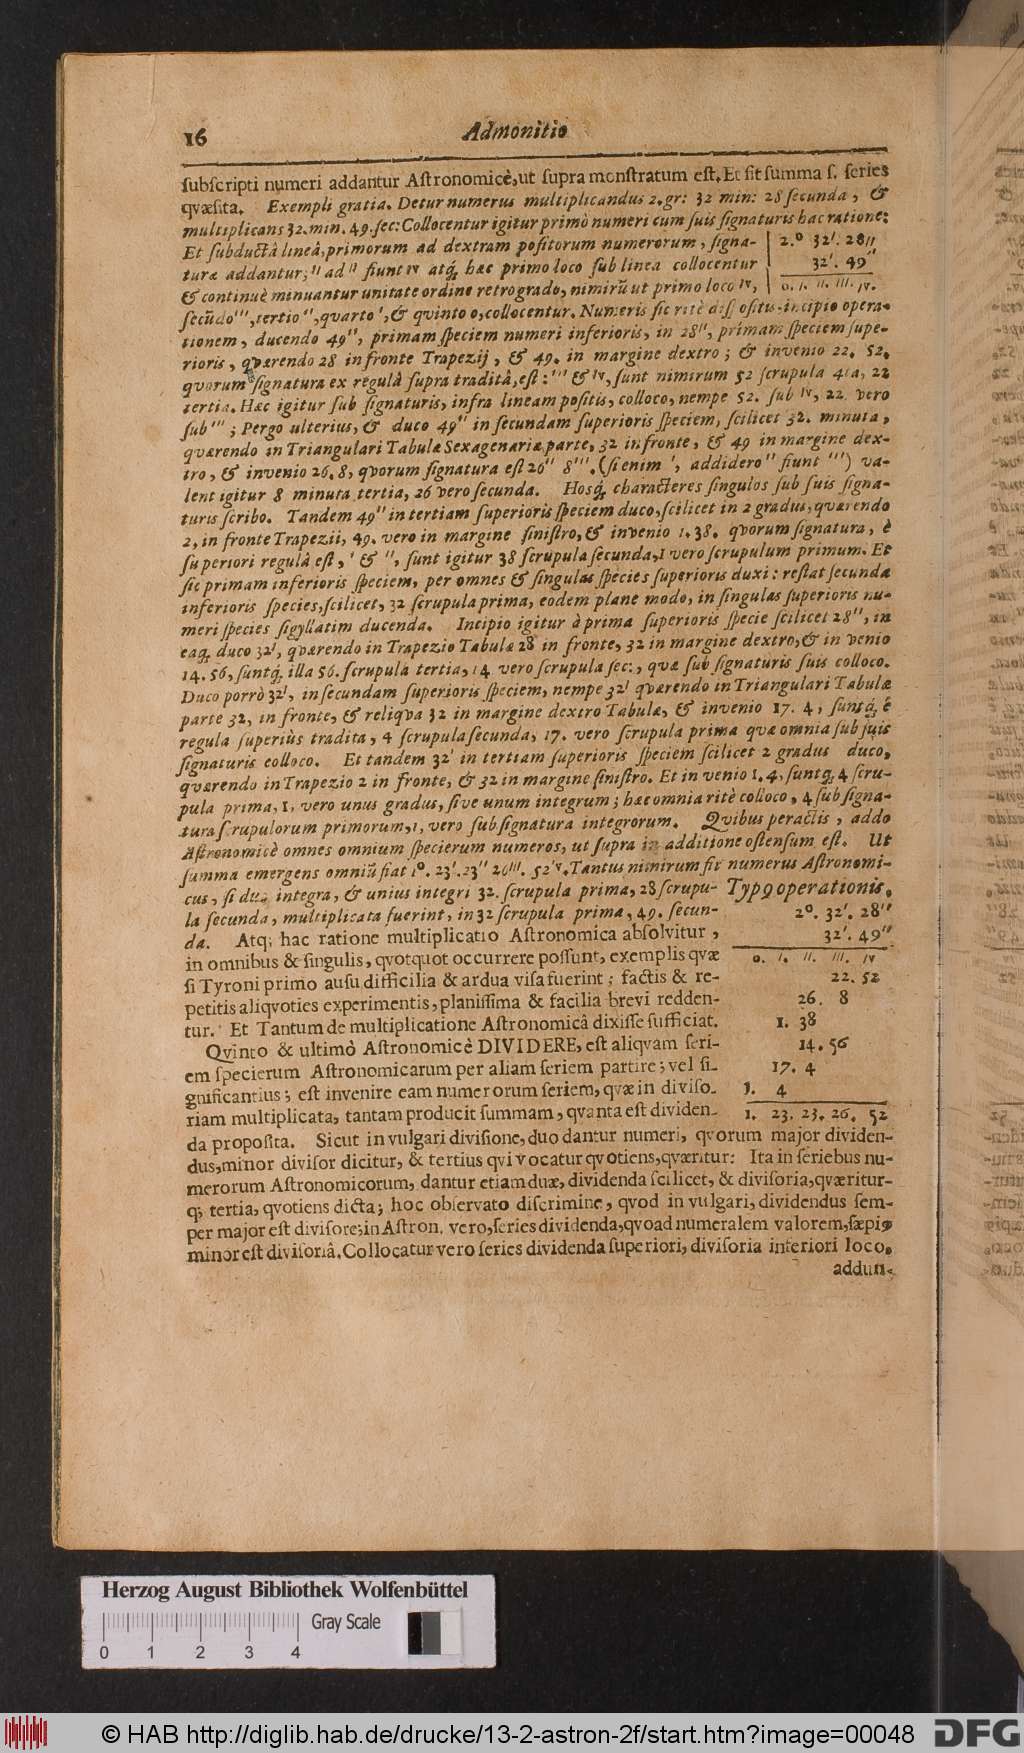 16 Admonitio
ſubſcripti numeri addantur Aſtronomicè, ut ſupra monſtratum eſt. Et ſit ſumma ſ. ſeries
qvæſita. Exempli gratia. Detur numerus multiplicandus 2. gr: 32 min: 28 ſecunda, &
multiplicans 32. min. 49. ſec: Collocentur igitur primò numeri cum ſuis ſignaturis hac ratione:
Et ſubductâ lineâ, primorum ad dextram poſitorum numerorum, ſigna- 2.° 32'. 28"
turæ addantur; " ad " fiunt ɪv atq́; hæc primo loco ſub linea collocentur 32'. 49"
& continuè minuantur unitate ordine retrogrado, nimirũ ut primo loco ɪv, 0. ɪ. ɪɪ. ɪɪɪ. ɪv.
ſecũdo ''', tertio '', quarto ', & quinto 0, collocentur. Numeris ſic ritè diſpoſitis, incipio opera-
tionem, ducendo 49'', primam ſpeciem numeri inferioris, in 28'', primam ſpeciem ſupe-
rioris, qværendo 28 in fronte Trapezij, & 49. in margine dextro; & invenio 22. 52.
qvorum ſignatura ex regulâ ſupra traditâ, eſt: ''' & ɪv, ſunt nimirum 52 ſcrupula 4ta, 22
tertia. Hæc igitur ſub ſignaturis, infra lineam poſitis, colloco, nempe 52. ſub ɪv, 22 vero
ſub '''; Pergo ulterius, & duco 49'' in ſecundam ſuperioris ſpeciem, ſcilicet 32. minuta,
quærendo in Triangulari Tabulæ Sexagenariæ parte, 32 in fronte, & 49 in margine dex-
tro, & invenio 26. 8, qvorum ſignatura eſt 26'' 8'''. (ſi enim ', addidero '' fiunt ''') va-
lent igitur 8 minuta tertia, 26 vero ſecunda. Hosq́; characteres ſingulos ſub ſuis ſigna-
turis ſcribo. Tandem 49'' in tertiam ſuperioris ſpeciem duco, ſcilicet in 2 gradus, quærendo
2, in fronte Trapezii, 49. vero in margine ſiniſtro, & invenio 1. 38. qvorum ſignatura, è
ſuperiori regulâ eſt, ' & '', ſunt igitur 38 ſcrupula ſecunda, 1 vero ſcrupulum primum. Et
ſic primam inferioris ſpeciem, per omnes & ſingulas ſpecies ſuperioris duxi: reſtat ſecunda
inferioris ſpecies, ſcilicet, 32 ſcrupula prima, eodem plane modo, in ſingulas ſuperioris nu-
meri ſpecies ſigyllatim ducenda. Incipio igitur à prima ſuperioris ſpecie ſcilicet 28'', in
eaq́; duco 32', qværendo in Trapezio Tabulæ 28 in fronte, 32 in margine dextro; & in venio
14. 56, ſuntq́; illa 56. ſcrupula tertia, 14 vero ſcrupula ſec:, quæ ſub ſignaturis ſuis colloco.
Duco porrò 32', in ſecundam ſuperioris ſpeciem, nempe 32' qværendo in Triangulari Tabulæ
parte 32, in fronte, & reliqva 32 in margine dextro Tabulæ, & invenio 17. 4, ſuntq́; è
regula ſuperiùs tradita, 4 ſcrupula ſecunda, 17. vero ſcrupula prima quæ omnia ſub ſuis
ſignaturis colloco. Et tandem 32' in tertiam ſuperioris ſpeciem ſcilicet 2 gradus duco,
quærendo in Trapezio 2 in fronte, & 32 in margine ſiniſtro. Et in venio 1. 4, ſuntq́; 4 ſcru-
pula prima, 1, vero unus gradus, ſive unum integrum; hæc omnia ritè colloco, 4 ſub ſigna-
tura ſcrupulorum primorum, 1, vero ſub ſignatura integrorum. Qvibus peractis, addo
Aſtronomicè omnes omnium ſpecierum numeros, ut ſupra in additione oſtenſum eſt. Ut
ſumma emergens omniũ fiat 1°. 23'. 23'' 26'''. 52ɪv. Tantus nimirum fit numerus Aſtronomi-
cus, ſi duo integra, & unius integri 32. ſcrupula prima, 28 ſcrupu- Typꝰ operationis.
la ſecunda, multiplicata fuerint, in 32 ſcrupula prima, 49. ſecun- 2°. 32'. 28''
da. Atq; hac ratione multiplicatio Aſtronomica abſolvitur, 32'. 49''
in omnibus & ſingulis, qvotquot occurrere poſſunt, exemplis qvæ 0. ɪ. ɪɪ. ɪɪɪ. ɪv
ſi Tyroni primo auſu difficilia & ardua viſa fuerint; factis & re- 22. 52
petitis aliqvoties experimentis, planiſſima & facilia brevi redden- 26. 8
tur. Et Tantum de multiplicatione Aſtronomicâ dixiſſe ſufficiat. 1. 38
Qvinto & ultimò Aſtronomicè DIVIDERE, eſt aliqvam ſeri- 14. 56
em ſpecierum Aſtronomicarum per aliam ſeriem partire; vel ſi- 17. 4
gnificantius; eſt invenire eam numerorum ſeriem, qvæ in diviſo- 1. 4
riam multiplicata, tantam producit ſummam, qvanta eſt dividen- 1. 23. 23. 26. 52
da propoſita. Sicut in vulgari diviſione, duo dantur numeri, qvorum major dividen-
dus, minor diviſor dicitur, & tertius qvi vocatur qvotiens, qværitur: Ita in ſeriebus nu-
merorum Aſtronomicorum, dantur etiam duæ, dividenda ſcilicet, & diviſoria, qværitur-
q; tertia, qvotiens dicta; hoc obſervato diſcrimine, qvod in vulgari, dividendus ſem-
per major eſt diviſore; in Aſtron. vero, ſeries dividenda, qvoad numeralem valorem, ſæpiꝰ
minor eſt diviſoriâ. Collocatur vero ſeries dividenda ſuperiori, diviſoria inferiori loco.
addun-
Herzog August Bibliothek Wolfenbüttel
Gray Scale
0 1 2 3 4
© HAB http://diglib.hab.de/drucke/13-2-astron-2f/start.htm?image=00048 DFG